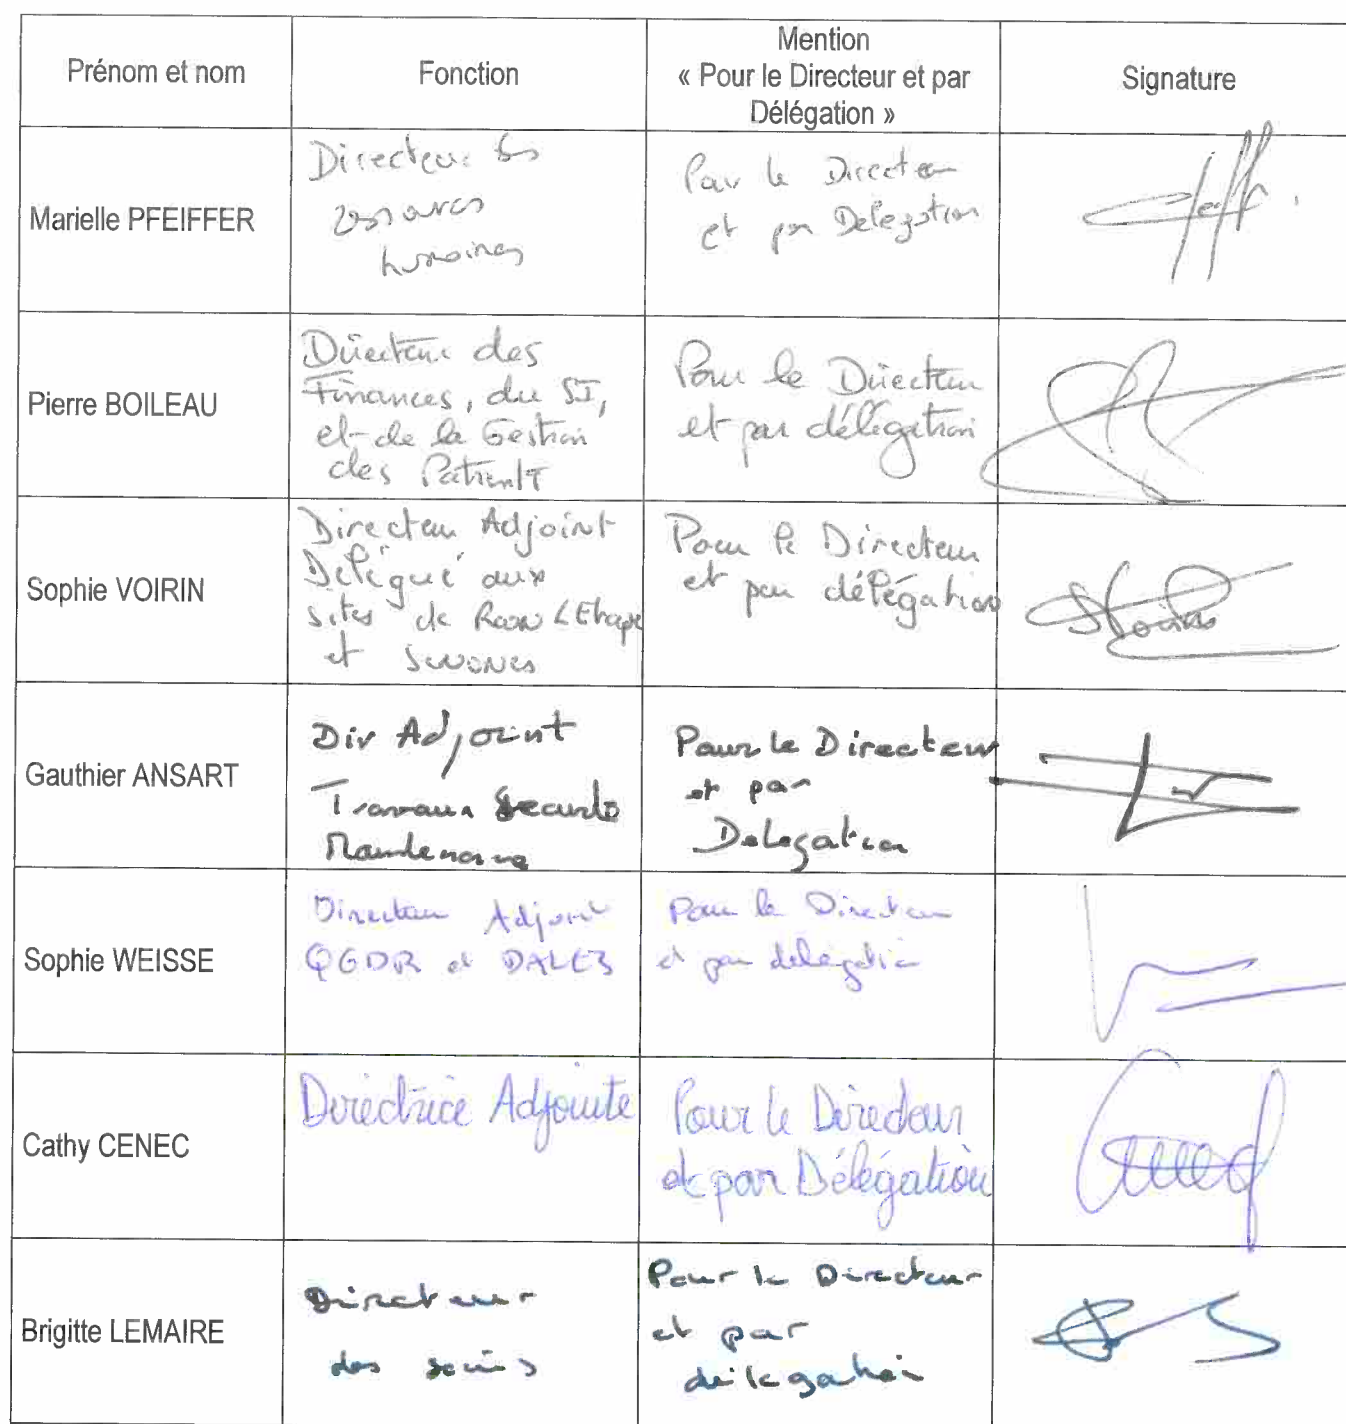 Prénom et nom
Fonction
Mention
« Pour le Directeur et par
Délégation »
Signature
Marielle PFEIFFER
Directeur des
ressources
humaines
Pour le Directeur
et par Delegation
Pierre BOILEAU
Directeur des
Finances, du SI,
et de la Gestion
des Patients
Pour le Directeur
et par délégation
Sophie VOIRIN
Directeur Adjoint
Délégué aux
sites de Raon L'Etape
et Senones
Pour le Directeur
et par délégation
Gauthier ANSART
Dir Adjoint
Travaux Securite
Maintenance
Pour le Directeur
et par
Delegation
Sophie WEISSE
Directeur Adjoint
QGDR et
Pour le Directeur
et par délégation
Cathy CENEC
Directrice Adjointe
Pour le Directeur
et par Délégation
Brigitte LEMAIRE
Directeur
des soins
Pour le Directeur
et par
délégation